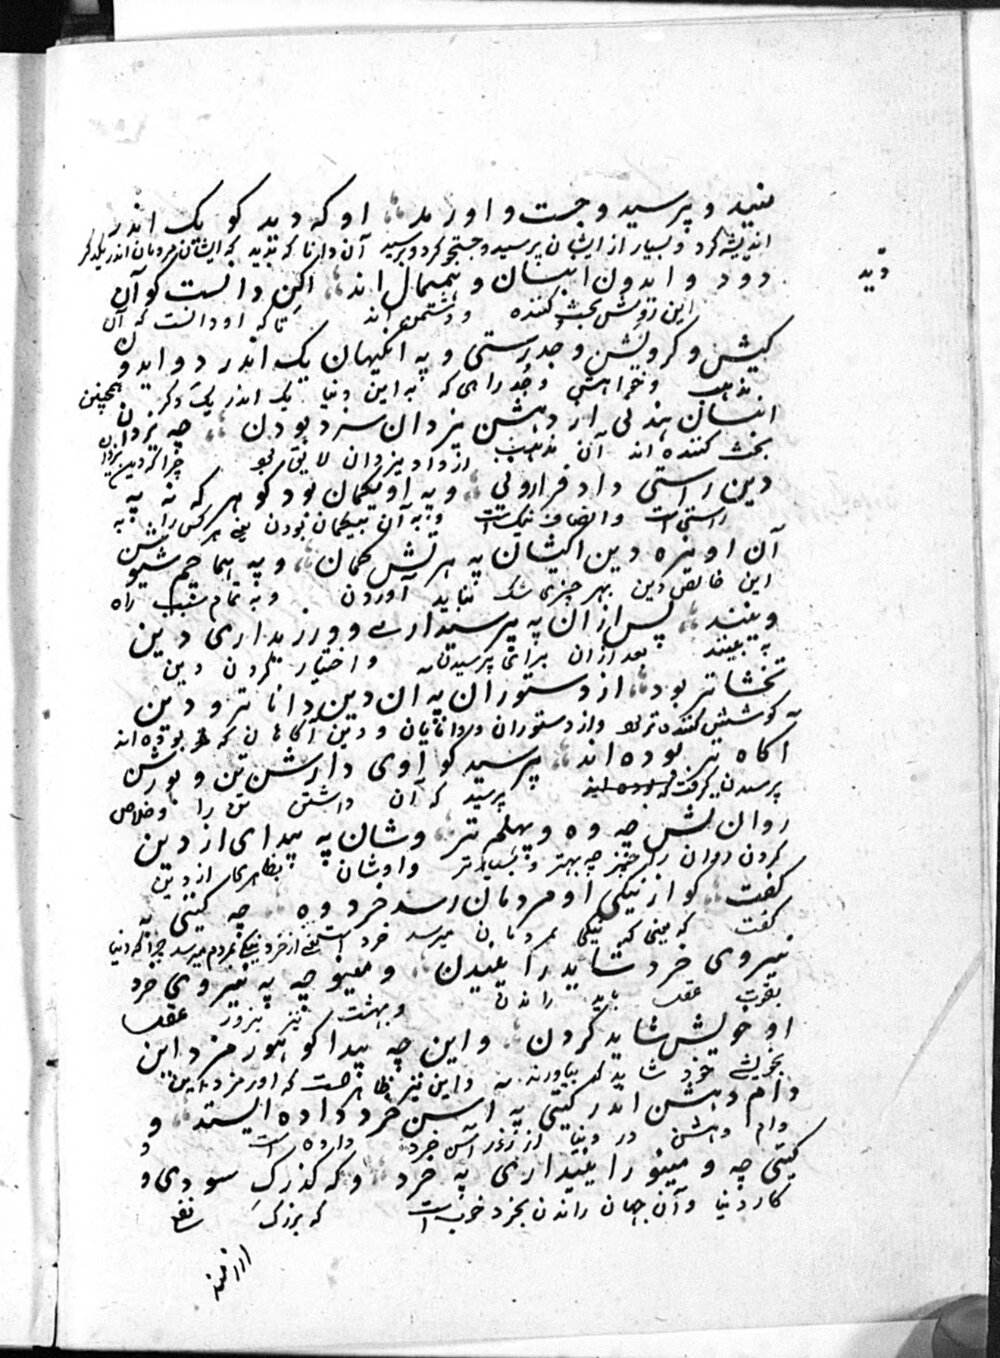 منید و پرسید و جست و اورمد؞ او که دید کو یک اندر
اندیشه کرد و بسیار از ایشان پرسید و جستجو کرد و برسید آن دانا که بدید که ایشان مردمان اندر یکدگر
دید
دود و ایدون ایشان و همیمال اند؞ اکن دانست کو آن
راین روش بحث کننده و دشمن اند تا که او دانست که آن
کیش و کروشن و جدرستی و په انکیهان یک اندر دو ایدون
مذهب و خواهش و جُد راهی که به این دنیا یک اندر یک دگر همچنین
انسان هند نی از دهشن یزدان سزد بودن؞ چه یزدان
بحث کننده اند آن مذهب از داد یزدان لایق بو چرا که دین یزدان
دین راستی داد فرارونی؞ و په اویکمان بود کو هر که نه په
راستی است و انصاف نیک است و به آن بیگمان بودن یعنی هر کس را به
آن اویزه دین اکیشان په هر تش گمان؞ و په هما چم شیون
این خالص دین بهر چیزی شک نباید آوردن و به تمام سبب راه
وینند؞ پس ازان په پرسیداری و ورزیداری دین
به بینند بعد ازان برای پرسیدن و اختیار کردن دین
تخشاتر بود؞ از دستوران په آن دین دانا تر و دین
کوشش کننده تر بو و از دستوران و دانایان و دین آگاهان که بوده اند
آگاه تر بوده اند؞ پرسید کو اوی دارشن تن و بورشن
پرسیدن گرفت پرسید که آن داشتن تن را و خلاص
روان لش چه وه و پهلم تر؞ وشان په پیدای از دین
کردن روان را چیز چه بهتر و بسیارتر و اوشان بظاهری از دین
گفت؞ کو از نیکی او مردمان رسد خرد وه؞ چه گیتی په
گفت که مینی که نیکی بمردمان میرسد خرد است یعنی از خرد نیکی بمردم میرسد چرا که دنیا به
نیروی خرد شاید را ینیدن؞ و مینو چه په نیروی خرد
بقوت عقل باید راندن و بهشت نیز بزور عقل
او خویش شاید کردن؞ و این چه پیدا کو هورمزد این
بخویش خود شاید که بیاورند و این نیز ظاهر هست که اورمزد این
دام دهشن اندر گیتی په اسن خرد داده ایستد؞ و
دام دهشن در دنیا از زور آسن خرد داده است و
گیتی چه و مینو را ینیداری په خرد؞ و که گذرک سودی و
کار دنیا و آن جهان راندن بخرد خوب است که بزرگ نفع